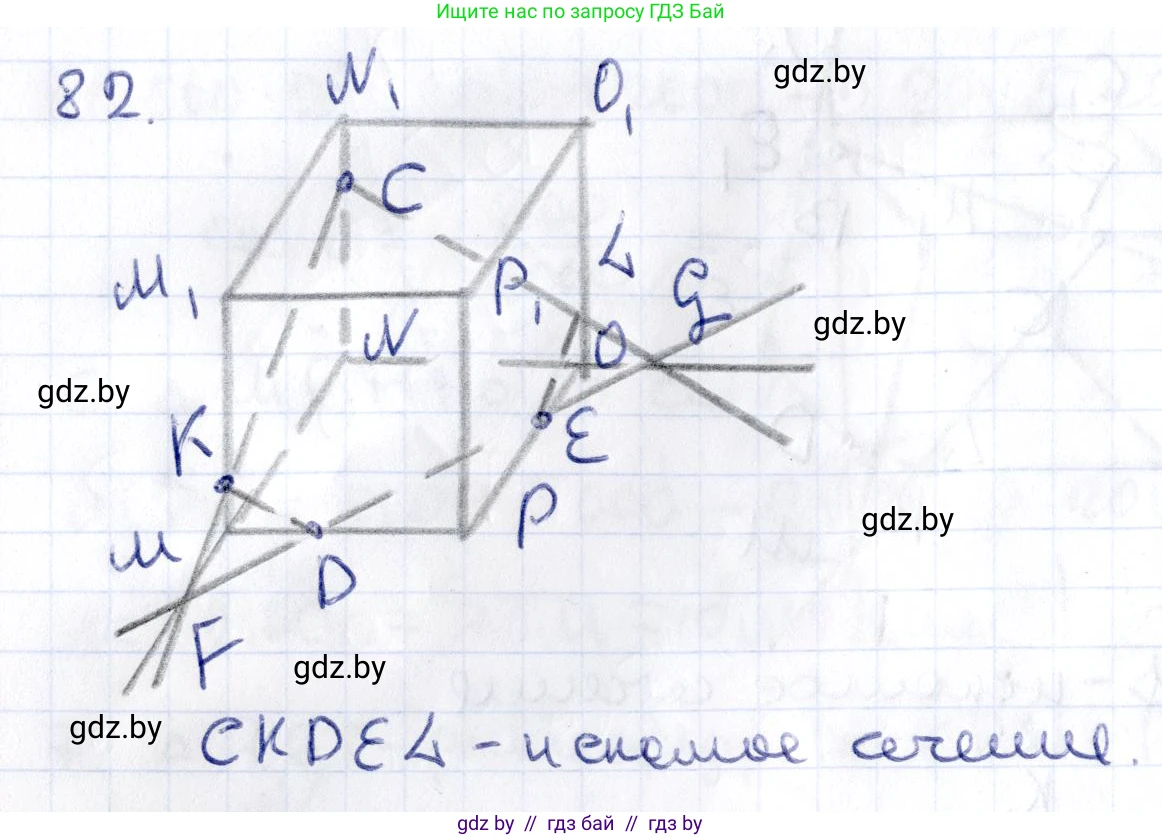 Ищите нас по запросу ГДЗ Бай
82.
N₁
O₁
gdz.by
C
L
M₁
P₁
G
gdz.by
N
O
gdz.by
K
E
P
gdz.by
M
D
F
gdz.by
gdz.by
CKDEL - искомое сечение.
gdz.by // гдз бай // gdz.by